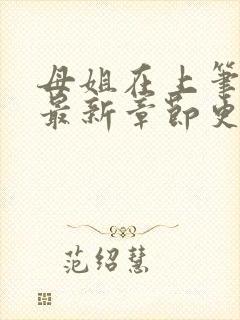 母姐在上筆
最新章節史
范绍慧